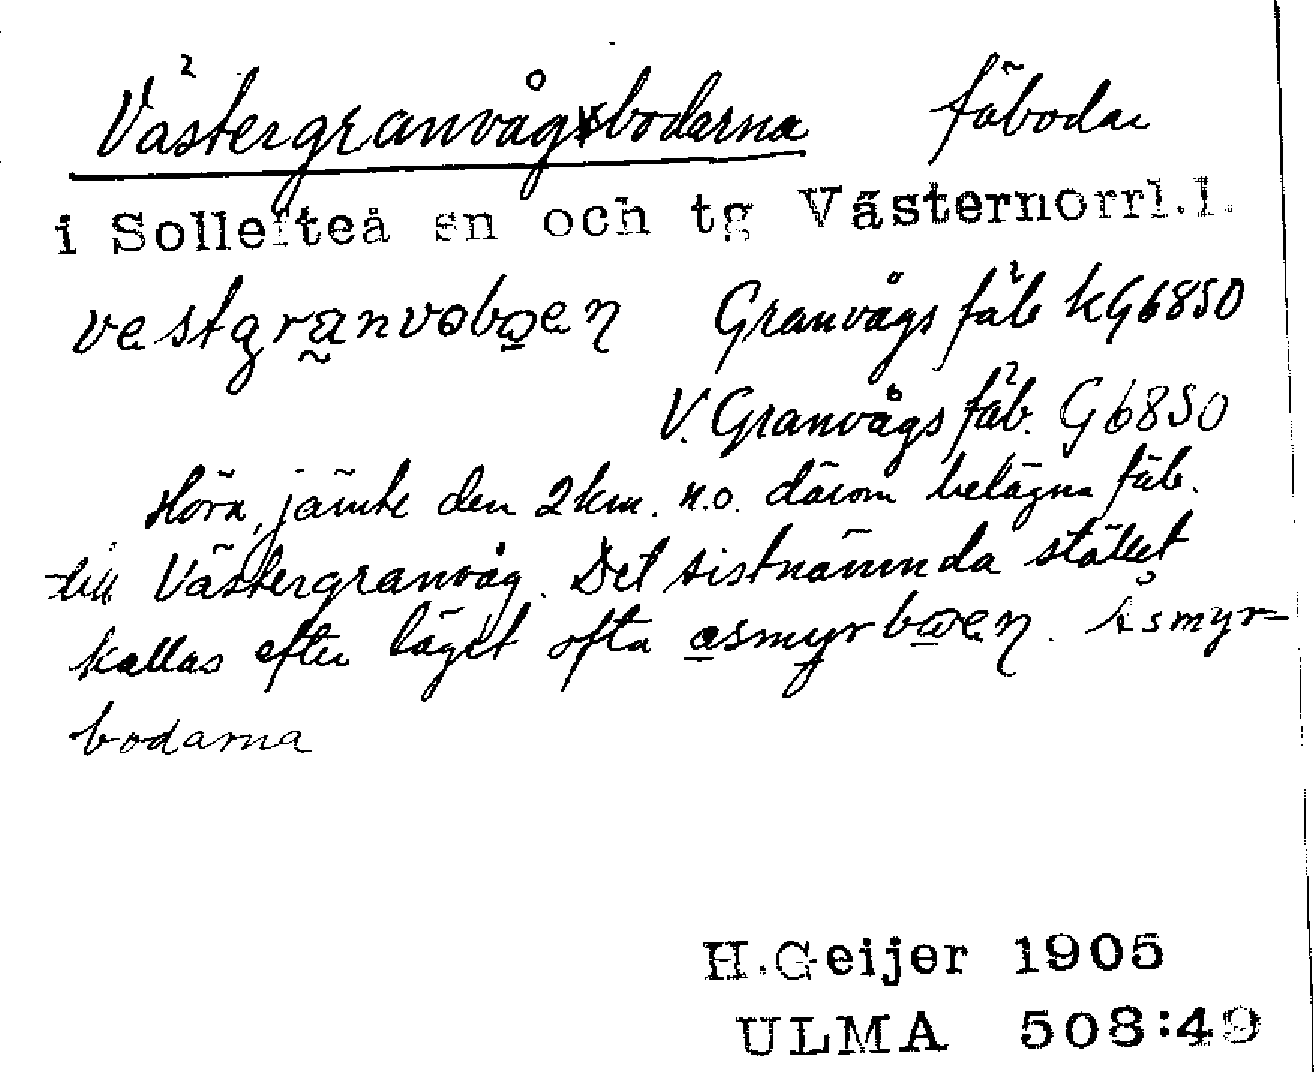 Västergranvågsbodarna fäbodar
i Sollefteå sn och tg Västernorrl.l.
vestgranvoboen Granvågs fäb kG6850
V. Granvågs fäb. G6850
Höra, jämte den 2 km. n.o. därom belägna fäb.
till Västergranvåg. Det sistnämnda stället
kallas efter läget ofta asmyrboen. Åsmyr-
bodarna
H.Geijer 1905
ULMA 508:49